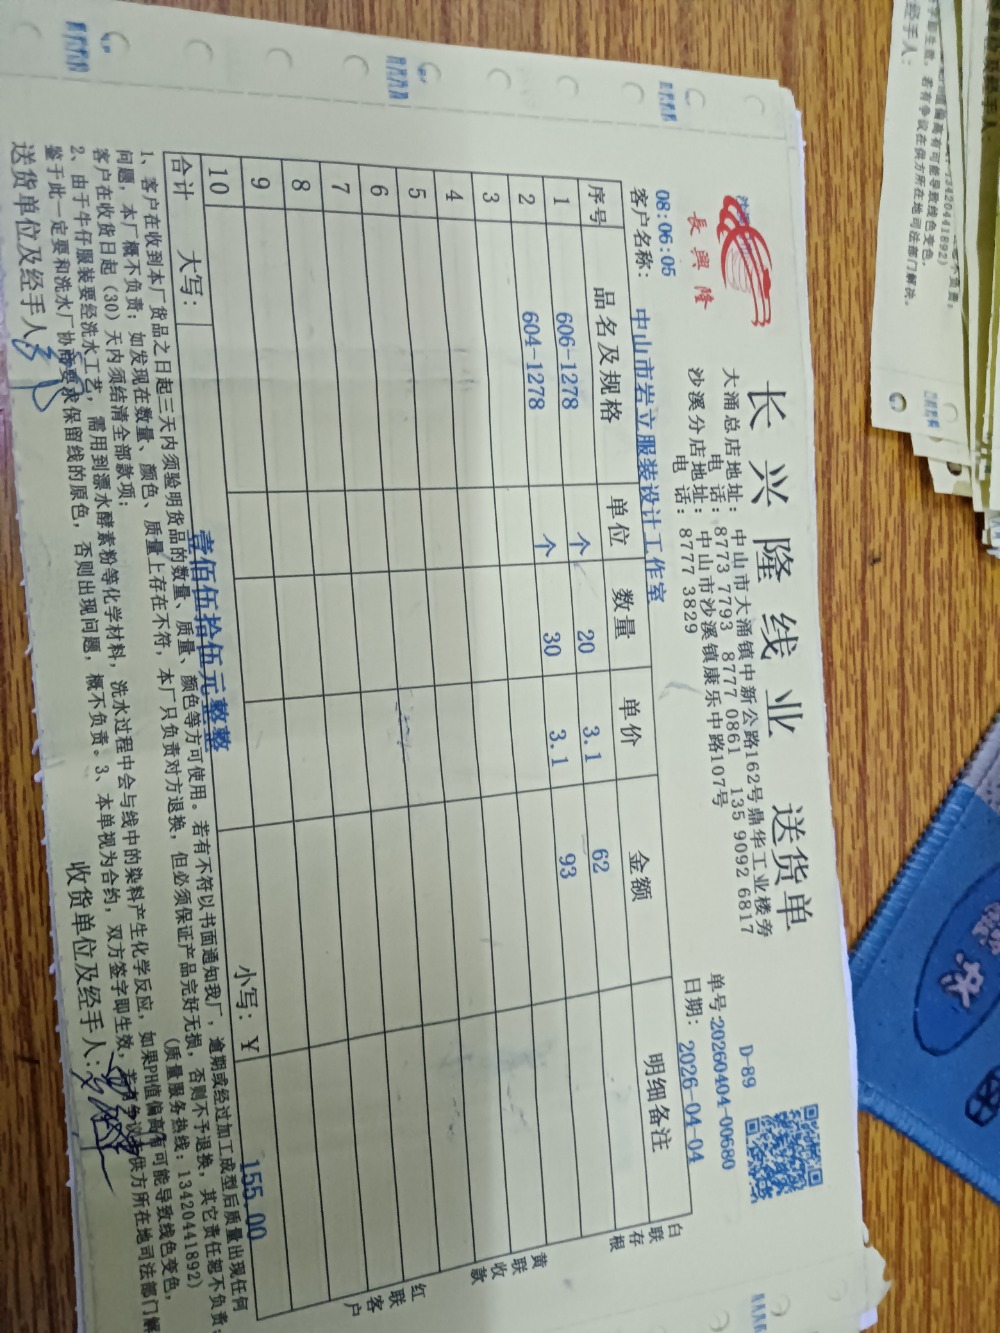 長興隆
长兴隆线业 送货单
大涌总店地址：中山市大涌镇中新公路162号鼎华工业楼旁
电话：8773 7793 8777 0861 135 9092 6817
沙溪分店地址：中山市沙溪镇康乐中路107号
电话：8777 3829
D-89
单号:20260404-00680
08:06:05
日期：2026-04-04
客户名称：中山市岩立服装设计工作室
序号 品名及规格 单位 数量 单价 金额 明细备注
1 606-1278 个 20 3.1 62
2 604-1278 个 30 3.1 93
3
4
5
6
7
8
9
10
合计 大写：壹佰伍拾伍元整整 小写：￥ 155.00
白联存根
黄联收款
红联客户
1、客户在收到本厂货品之日起三天内须验明货品的数量、质量、颜色等方可使用。若有不符以书面通知我厂，逾期或经过加工成型后质量出现任何
问题，本厂概不负责；如发现在数量、颜色、质量上存在不符，本厂只负责对方退换，但必须保证产品完好无损，否则不予退换，其它责任恕不负责；
客户在收货日起（30）天内须结清全部款项； （质量服务热线：13420441892）
2、由于牛仔服装要经洗水工艺，需用到漂水酵素粉等化学材料，洗水过程中会与线中的染料产生化学反应，如果PH值偏高有可能导致线色变色，
鉴于此一定要和洗水厂协商要求保留线的原色，否则出现问题，概不负责。3、本单视为合约，双方签字即生效，若有争议在供方所在地司法部门解
送货单位及经手人： 收货单位及经手人：
值偏高有可能导致线色变色，
若有争议在供方所在地司法部门解决。
13420441892）
经手人：